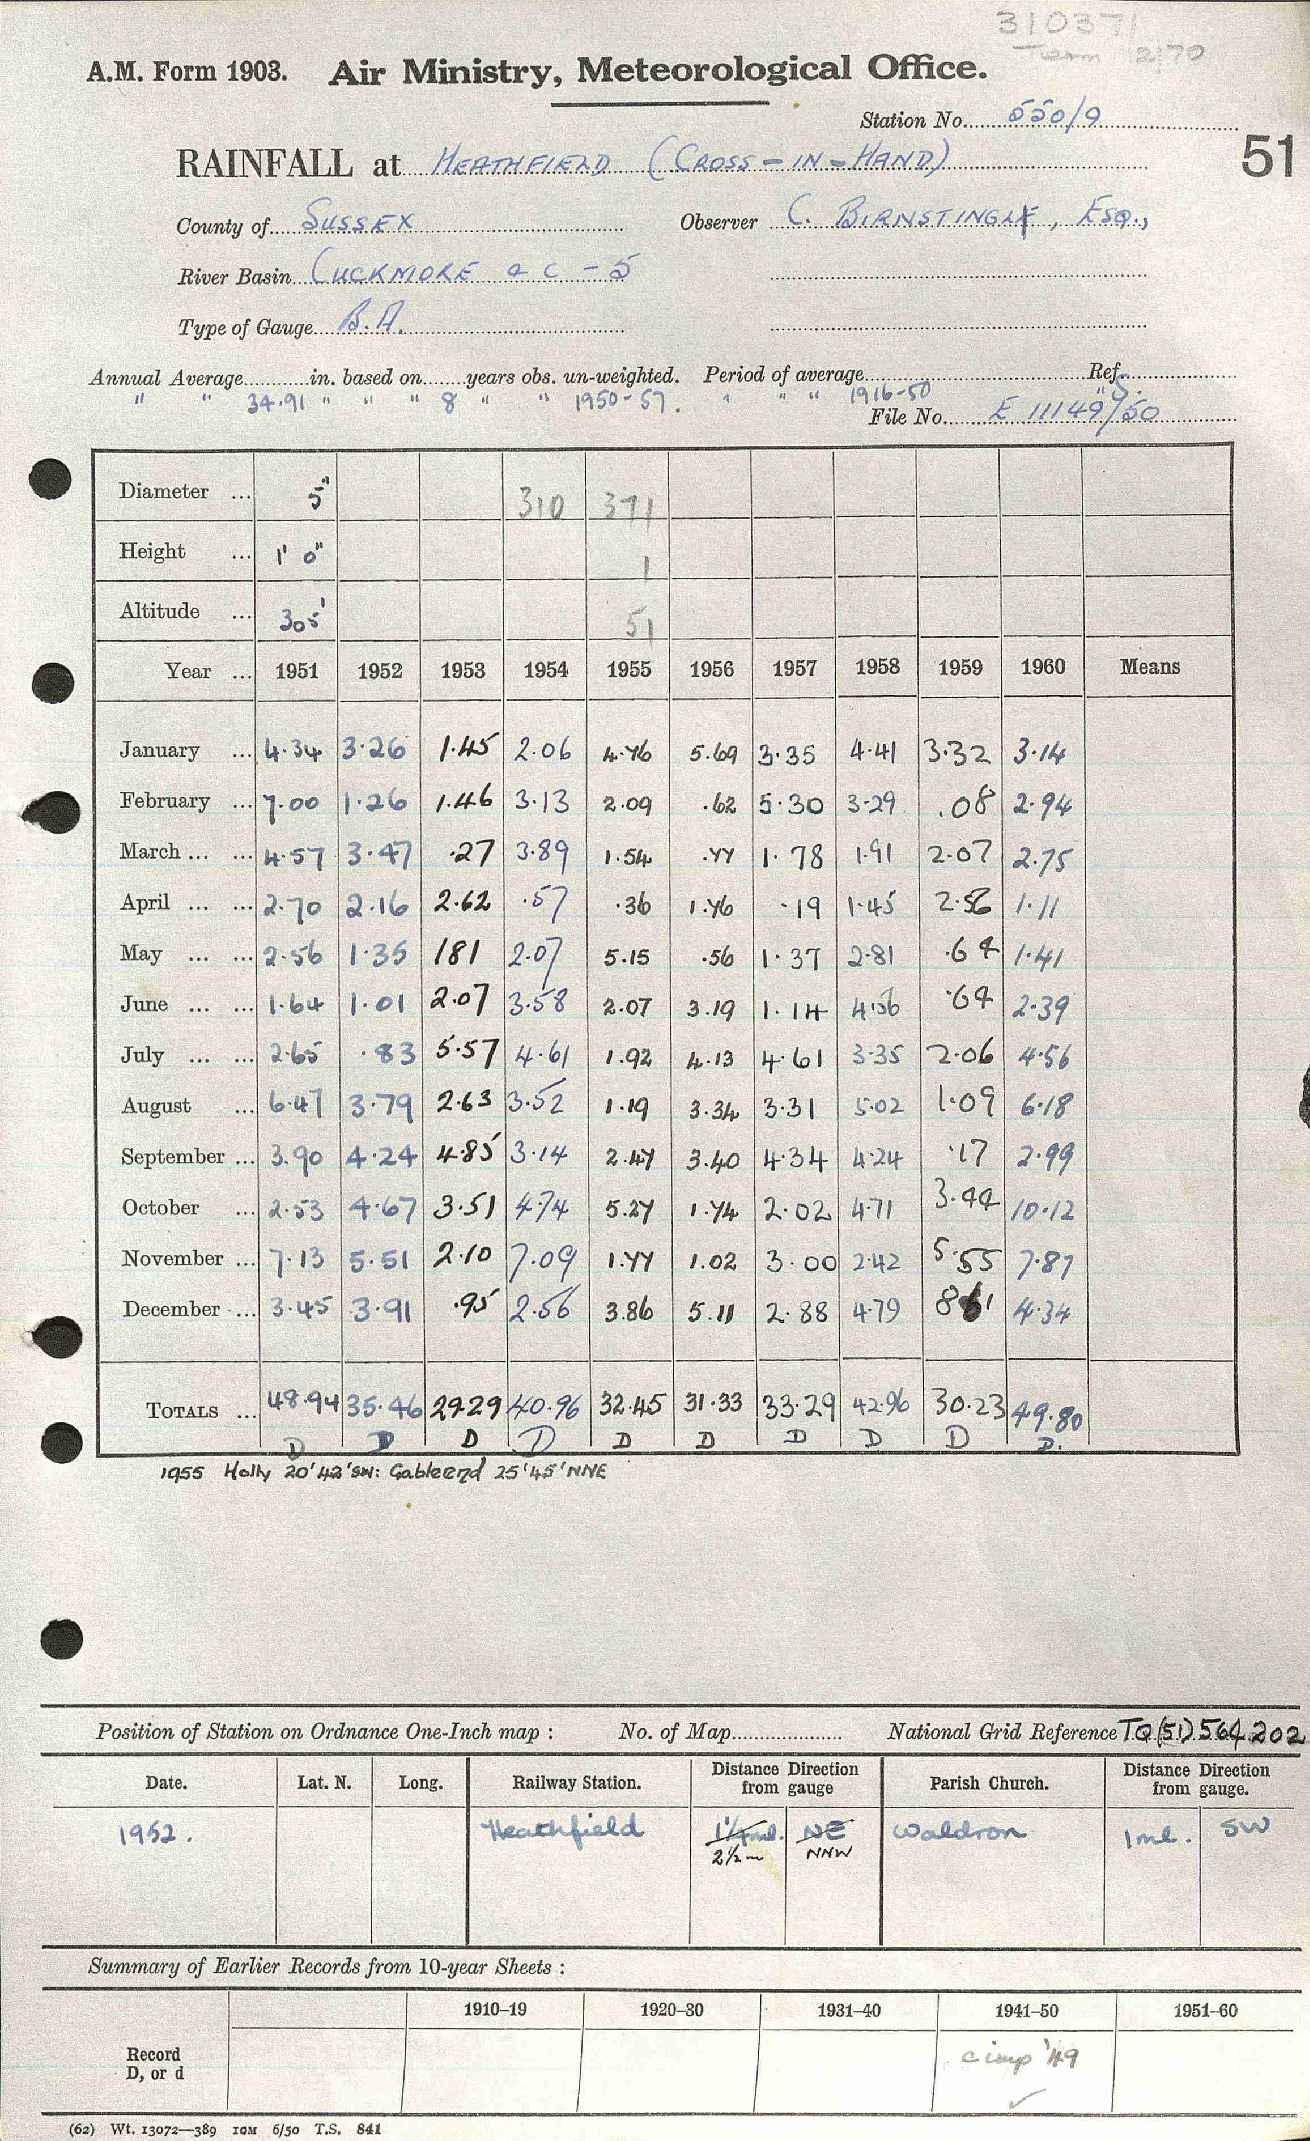 310371
A.M. Form 1903. Air Ministry, Meteorological Office.
Station No. 550/9
51
RAINFALL at HEATHFIELD (CROSS-IN-HAND)
County of SUSSEX Observer C. BIRNSTINGL, ESQ.,
River Basin CUCKMORE &c -5
Type of Gauge B.A.
Annual Average in. based on years obs. un-weighted. Period of average Ref.
" " 34.91 " " " 8 " " 1950-57. " " " 1916-50 " S.
File No. E 11149/50
Diameter ... 5" 310 371
Height ... 1' 0" 1
Altitude ... 305' 51
Year ... 1951 1952 1953 1954 1955 1956 1957 1958 1959 1960 Means
January ... 4.34 3.26 1.45 2.06 4.76 5.69 3.35 4.41 3.32 3.14
February ... 7.00 1.26 1.46 3.13 2.09 .62 5.30 3.29 .08 2.94
March ... ... 4.57 3.47 .27 3.89 1.54 .77 1.78 1.91 2.07 2.75
April ... ... 2.70 2.16 2.62 .57 .36 1.76 .19 1.45 2.56 1.11
May ... ... 2.56 1.35 181 2.07 5.15 .56 1.37 2.81 .64 1.41
June ... ... 1.64 1.01 2.07 3.58 2.07 3.19 1.14 4.56 .64 2.39
July ... ... 2.65 .83 5.57 4.61 1.92 4.13 4.61 3.35 2.06 4.56
August ... 6.47 3.79 2.63 3.52 1.19 3.34 3.31 5.02 1.09 6.18
September ... 3.90 4.24 4.85 3.14 2.47 3.40 4.34 4.24 .17 2.99
October ... 2.53 4.67 3.51 4.74 5.27 1.74 2.02 4.71 3.44 10.12
November ... 7.13 5.51 2.10 7.09 1.77 1.02 3.00 2.42 5.55 7.87
December ... 3.45 3.91 .95 2.56 3.86 5.11 2.88 4.79 861 4.34
TOTALS ... 48.94 35.46 29.29 40.96 32.45 31.33 33.29 42.96 30.23 49.80
D D D D D D D D D D.
1955 Holly 20'42'SW: Gableend 25'45'NNE
Position of Station on Ordnance One-Inch map : No. of Map National Grid Reference TQ (51) 564 202
Date. Lat. N. Long. Railway Station. Distance from gauge Direction Parish Church. Distance from gauge. Direction
1952. Heathfield 1¼ml. NE Waldron 1ml. SW
2½m NNW
Summary of Earlier Records from 10-year Sheets :
1910–19 1920–30 1931–40 1941–50 1951–60
Record D, or d c imp '49
(62) Wt. 13072—389 10M 6/50 T.S. 841